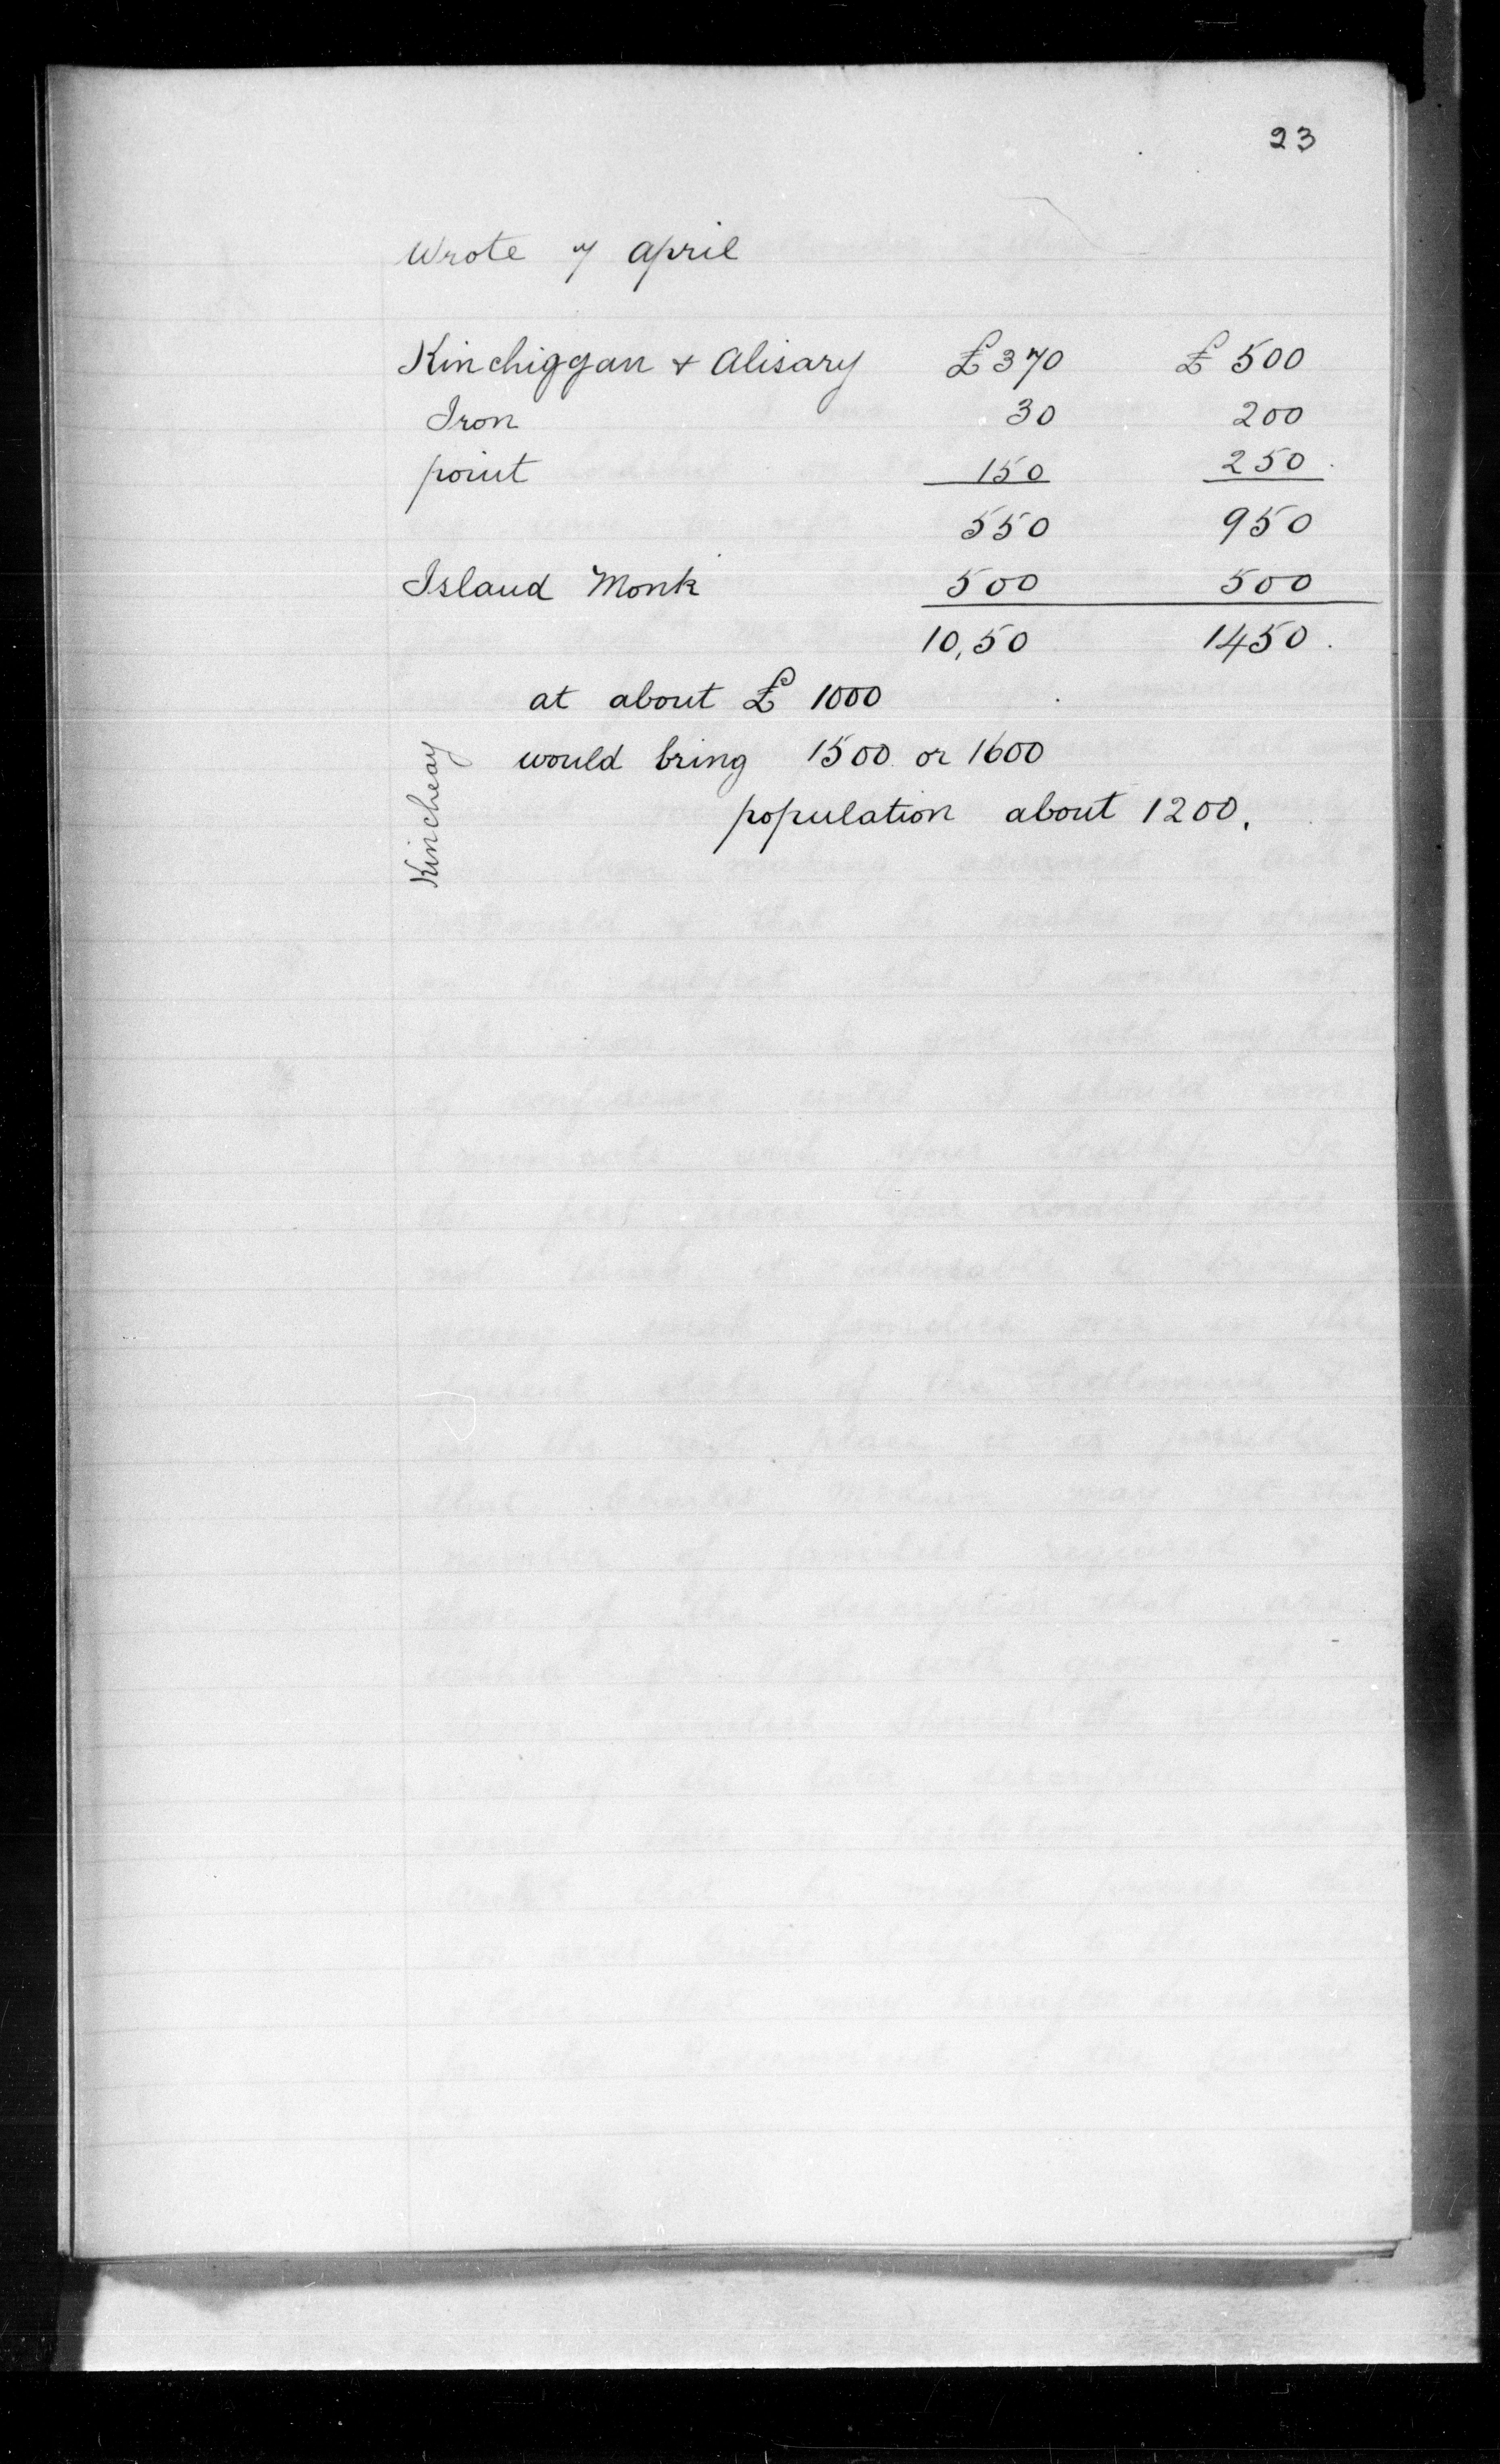 23
Wrote 7 April
Kinchiggan & Alisary £370 £ 500
Iron 30 200
point 150 250.
550 950
Island Monk 500 500
10,50 1450.
at about £ 1000
would bring 1500 or 1600
population about 1200.
Kincheay